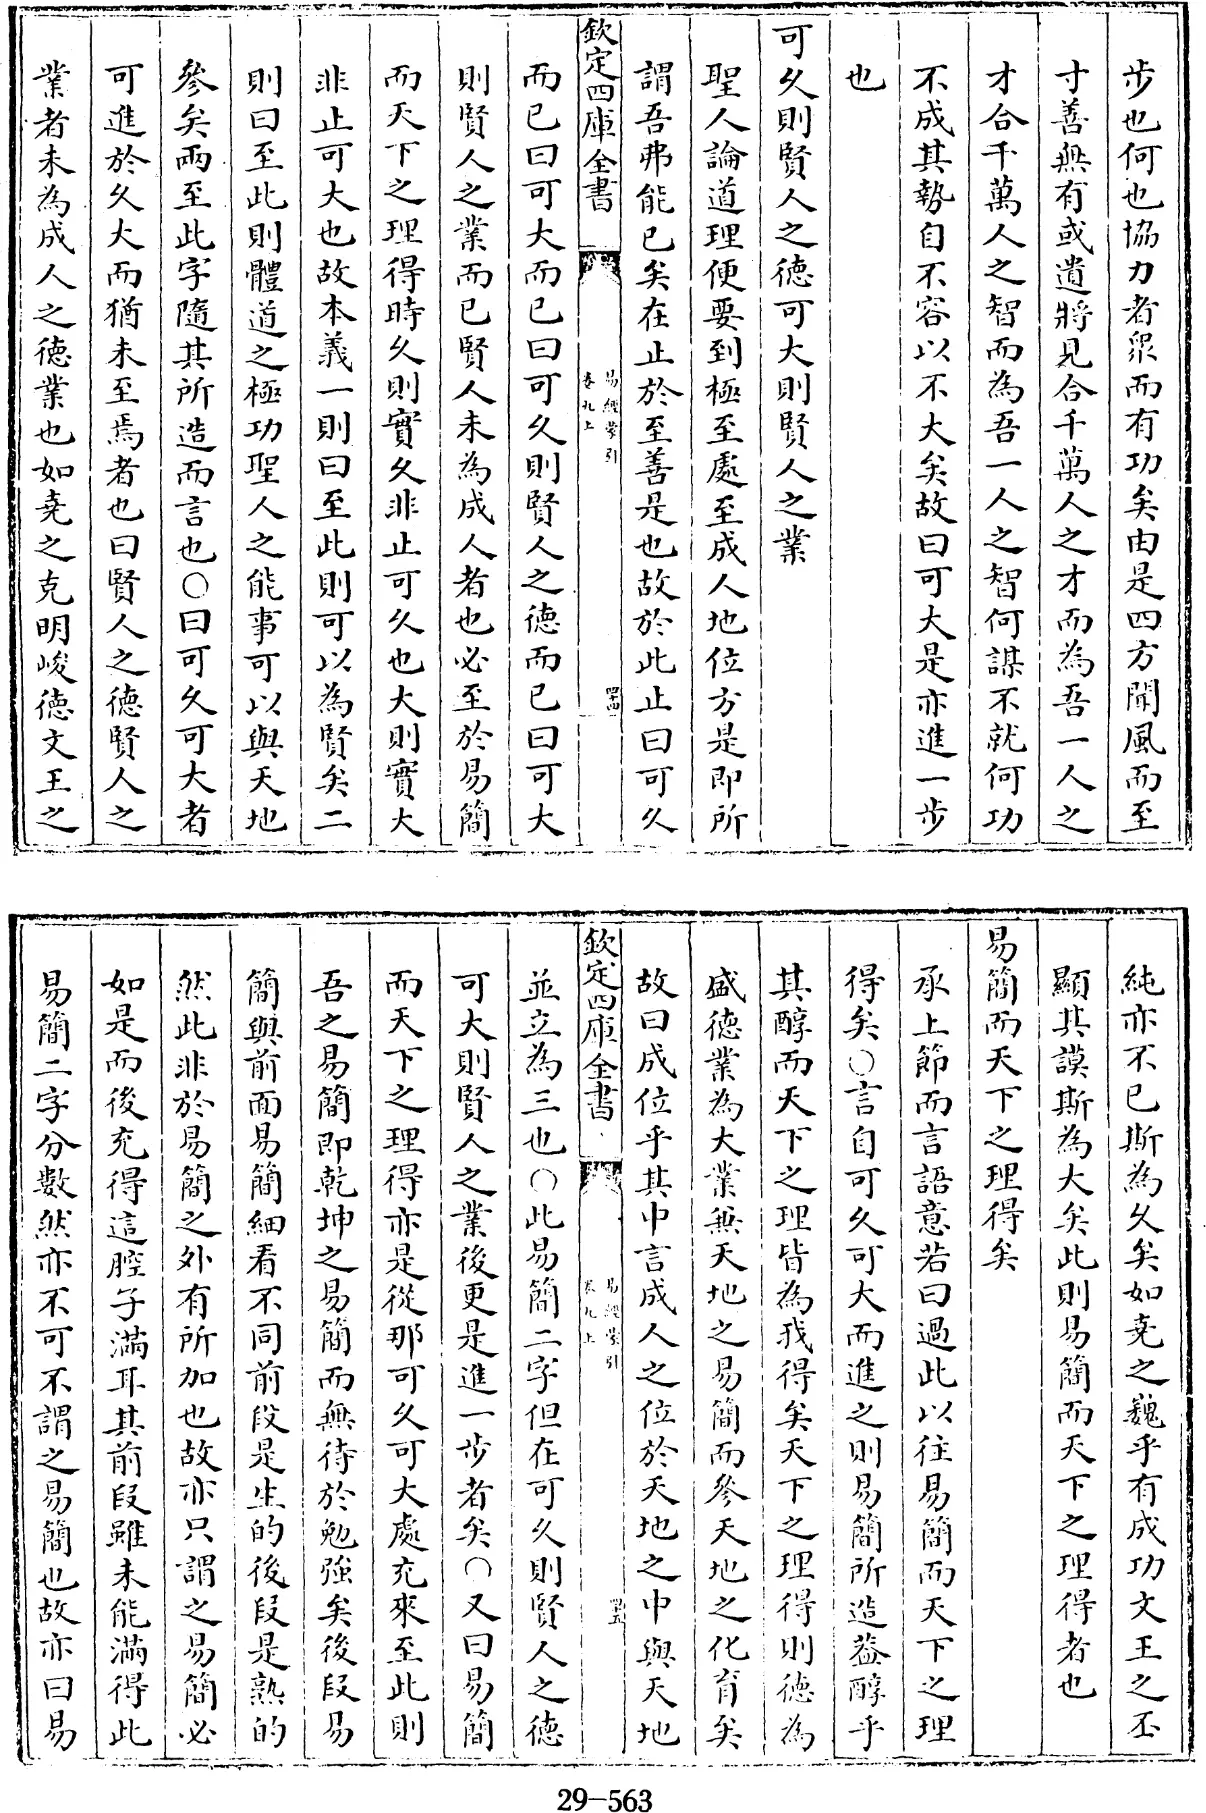 步也何也協力者衆而有功矣由是四方聞風而至
寸善無有或遺將見合千萬人之才而為吾一人之
才合千萬人之智而為吾一人之智何謀不就何功
不成其勢自不容以不大矣故曰可大是亦進一步
也
可久則賢人之德可大則賢人之業
聖人論道理便要到極至處至成人地位方是即所
謂吾弗能已矣在止於至善是也故於此止曰可久
欽定四庫全書
易經蒙引
卷九上
四十四
而已曰可大而已曰可久則賢人之德而已曰可大
則賢人之業而已賢人未為成人者也必至於易簡
而天下之理得時久則實久非止可久也大則實大
非止可大也故本義一則曰至此則可以為賢矣二
則曰至此則體道之極功聖人之能事可以與天地
參矣兩至此字隨其所造而言也○曰可久可大者
可進於久大而猶未至焉者也曰賢人之德賢人之
業者未為成人之德業也如堯之克明峻德文王之
純亦不已斯為久矣如堯之巍乎有成功文王之丕
顯其謨斯為大矣此則易簡而天下之理得者也
易簡而天下之理得矣
承上節而言語意若曰過此以往易簡而天下之理
得矣○言自可久可大而進之則易簡所造益醇乎
其醇而天下之理皆為我得矣天下之理得則德為
盛德業為大業無天地之易簡而參天地之化育矣
故曰成位乎其中言成人之位於天地之中與天地
欽定四庫全書
易經蒙引
卷九上
四十五
並立為三也○此易簡二字但在可久則賢人之德
可大則賢人之業後更是進一步者矣○又曰易簡
而天下之理得亦是從那可久可大處充來至此則
吾之易簡即乾坤之易簡而無待於勉強矣後段易
簡與前面易簡細看不同前段是生的後段是熟的
然此非於易簡之外有所加也故亦只謂之易簡必
如是而後充得這腔子滿耳其前段雖未能滿得此
易簡二字分數然亦不可不謂之易簡也故亦曰易
29-563